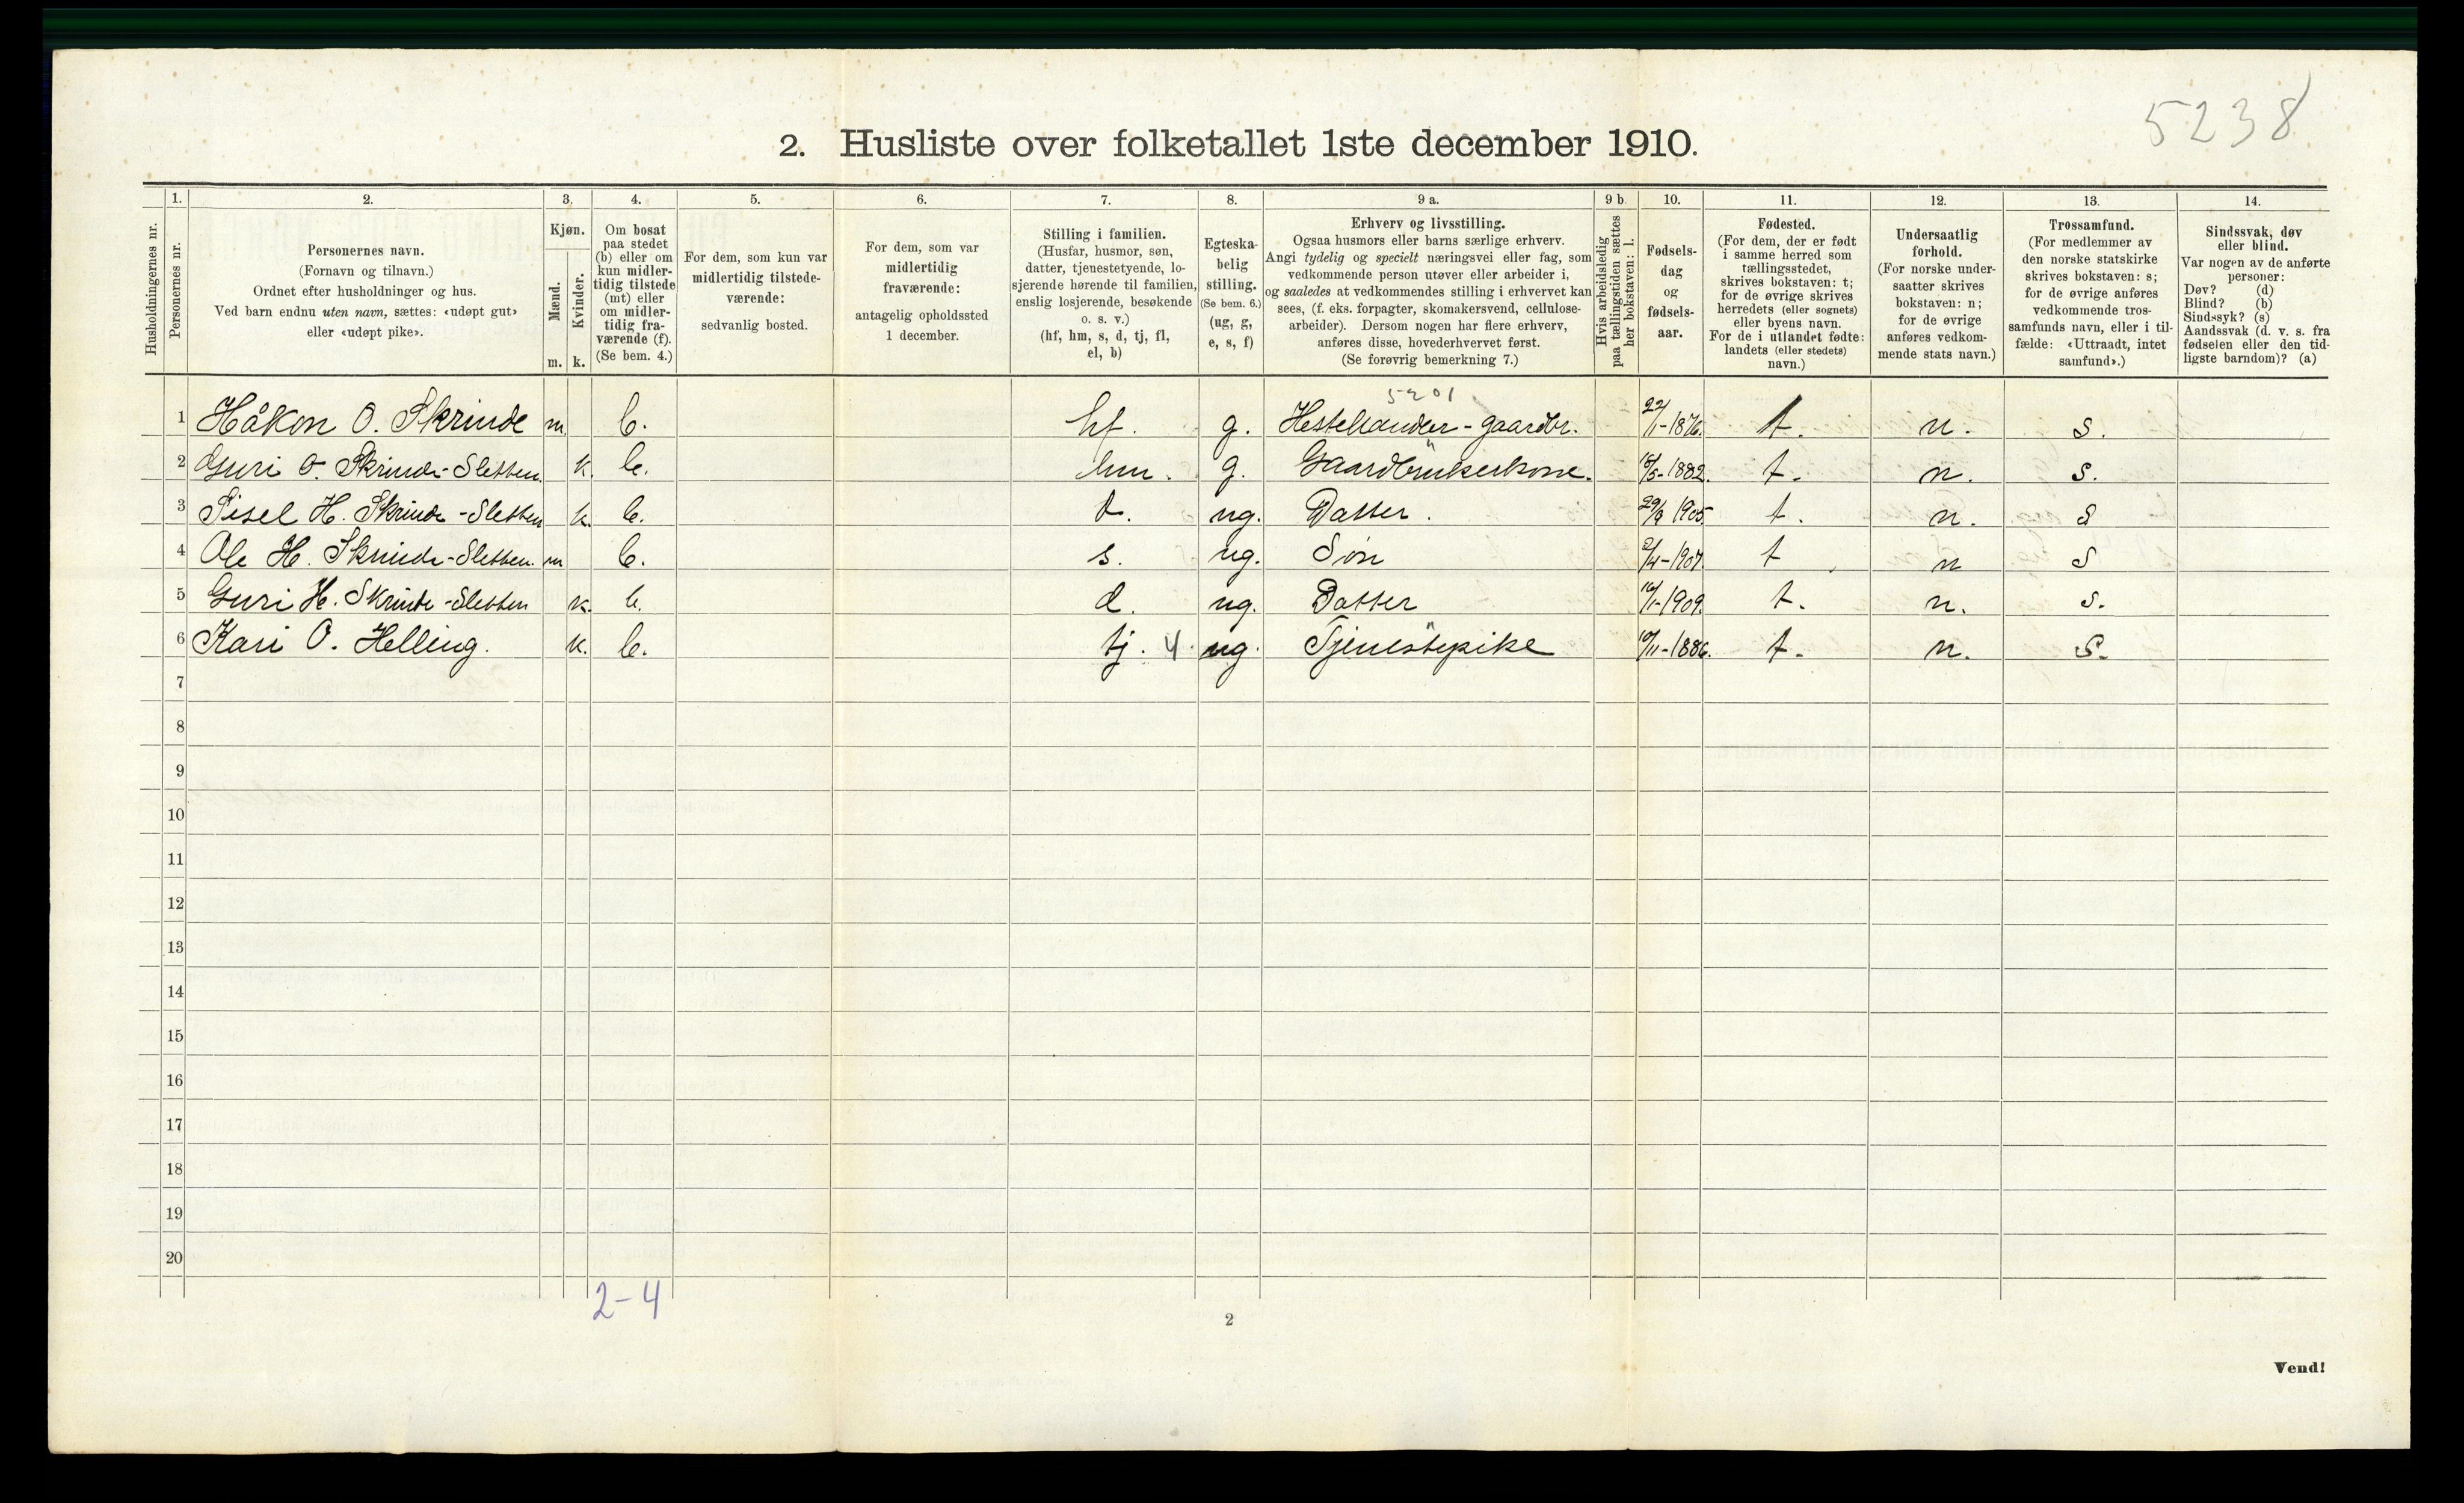 5238
2. Husliste over folketallet 1ste december 1910.
1. 2. 3. 4. 5. 6. 7. 8. 9 a. 9 b. 10. 11. 12. 13. 14.
Husholdningernes nr.
Personernes nr.
Personernes navn.
(Fornavn og tilnavn.)
Ordnet efter husholdninger og hus.
Ved barn endnu uten navn, sættes: «udøpt gut»
eller «udøpt pike».
Kjøn.
Mænd.
m.
Kvinder.
k.
Om bosat
paa stedet
(b) eller om
kun midler-
tidig tilstede
(mt) eller
om midler-
tidig fra-
værende (f).
(Se bem. 4.)
For dem, som kun var
midlertidig tilstede-
værende:
sedvanlig bosted.
For dem, som var
midlertidig
fraværende:
antagelig opholdssted
1 december.
Stilling i familien.
(Husfar, husmor, søn,
datter, tjenestetyende, lo-
sjerende hørende til familien,
enslig losjerende, besøkende
o. s. v.)
(hf, hm, s, d, tj, fl,
el, b)
Egteska-
belig
stilling.
(Se bem. 6.)
(ug, g,
e, s, f)
Erhverv og livsstilling.
Ogsaa husmors eller barns særlige erhverv.
Angi tydelig og specielt næringsvei eller fag, som
vedkommende person utøver eller arbeider i,
og saaledes at vedkommendes stilling i erhvervet kan
sees, (f. eks. forpagter, skomakersvend, cellulose-
arbeider). Dersom nogen har flere erhverv,
anføres disse, hovederhvervet først.
(Se forøvrig bemerkning 7.)
Hvis arbeidsledig
paa tællingstiden sættes
her bokstaven: l.
Fødsels-
dag
og
fødsels-
aar.
Fødested.
(For dem, der er født
i samme herred som
tællingsstedet,
skrives bokstaven: t;
for de øvrige skrives
herredets (eller sognets)
eller byens navn.
For de i utlandet fødte:
landets (eller stedets)
navn.)
Undersaatlig
forhold.
(For norske under-
saatter skrives
bokstaven: n;
for de øvrige
anføres vedkom-
mende stats navn.)
Trossamfund.
(For medlemmer av
den norske statskirke
skrives bokstaven: s;
for de øvrige anføres
vedkommende tros-
samfunds navn, eller i til-
fælde: «Uttraadt, intet
samfund».)
Sindssvak, døv
eller blind.
Var nogen av de anførte
personer:
Døv? (d)
Blind? (b)
Sindssyk? (s)
Aandssvak (d. v. s. fra
fødselen eller den tid-
ligste barndom)? (a)
5201
1 Håkon O. Skrinde m. b. hf. g. Hestehandler - gaardbr. 22/1-1876. t. n. s.
2 Guri O. Skrinde-Sletten. k. b. hm. g. Gaardbrukerkone. /5-1882. t. n. s.
3 Sisel H. Skrinde-Sletten k. b. d. ug. Datter. 29/9 1905 t. n. s
4 Ole H. Skrinde-Sletten. m b. s. ug. Søn 2/4-1907. t n s
5 Guri H. Skrinde-Sletten k. b. d. ug. Datter 16/1-1909. t. n. s.
6 Kari O. Helling. k. b. tj. 4 ug. Tjenestepike 10/11-1886. t. n. s.
7
8
9
10
11
12
13
14
15
16
17
18
19
20
2-4
2
Vend!